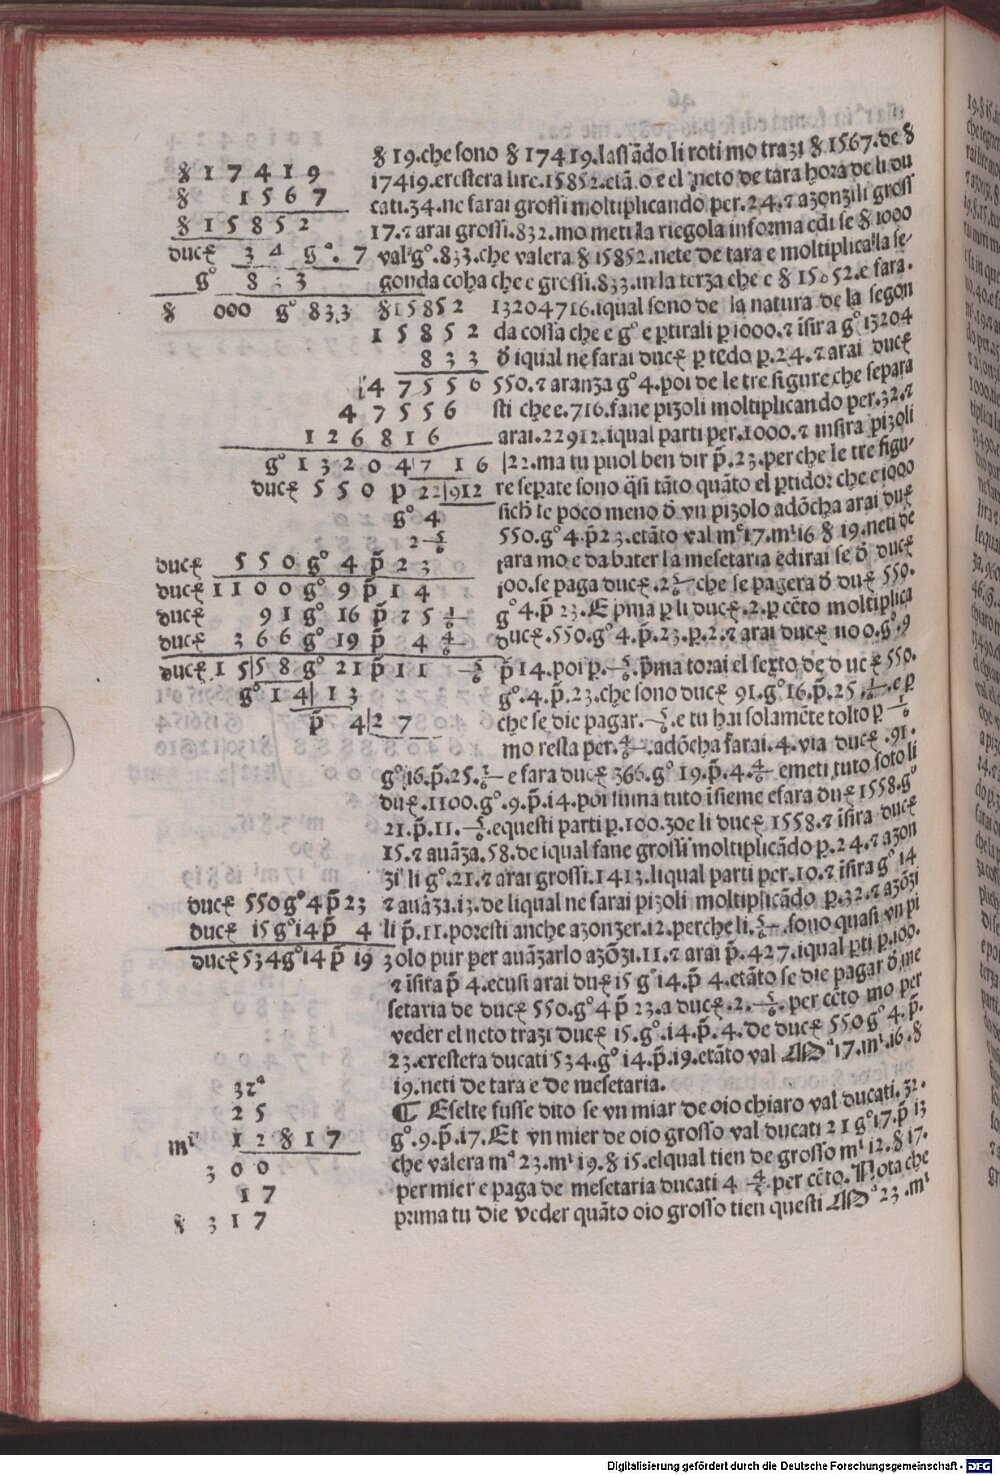 ℔ 19.che sono ℔ 17419.lassādo li roti mo trazi ℔ 1567.de ℔
17419.e restera lire.15852.etā.o e el neto de tara hora de li du
cati.34.ne farai grossi moltiplicando per.24.⁊ azonzili gross
17.⁊ arai grossi.832.mo meti la riegola in forma e di se ℔ 1000
val gº.833.che valera ℔ 15852.nete de tara e moltiplica la se
gonda coha che e grossi.833.in la terza che e ℔ 15852.e fara.
13204716.i qual sono de la natura de la segon
da cossa che e gº e ꝑtirali ꝑ 1000.⁊ īsira gº 13204
ō i qual ne farai ducꝭ ꝑ tēdo ꝑ.24.⁊ arai ducꝭ
550.⁊ aranza gº 4.poi de le tre figure che separa
sti che e.716.fane pizoli moltiplicando per.32.⁊
arai.22912.i qual parti per.1000.⁊ insira pizoli
|22.ma tu puol ben dir p̄.23.perche le tre figu
re seperate sono q̄si tāto quāto el ꝑtidor che e 1000
sich̄ le poco meno ō vn pizolo adōcha arai duꝭ
550.gº 4.p̄ 23.etāto val mª 17.mⁱ 16 ℔ 19.neti de
tara mo e da bater la mesetaria e dirai se ō ducꝭ
100.se paga ducꝭ.2 5/6 che se pagera ō duꝭ 550.
gº 4.p̄ 23.E pma ꝑ li ducꝭ.2.ꝑ cēto moltiplica
ducꝭ.550.gº 4.p̄.23.ꝑ.2.⁊ arai ducꝭ 1100.gº.9
p̄ 14.poi ꝑ.5/6.p̄ma torai el sexto de ducꝭ 550.
gº.4.p̄.23.che sono ducꝭ 91.gº 16.p̄.25.1/6.e ꝑ
che se die pagar.5/6.e tu hai solamēte tolto ꝑ 1/6
mo resta per.4/6.adōcha farai.4.via ducꝭ.91.
gº 16.p̄.25.1/6 e fara ducꝭ 366.gº 19.p̄.4.4/6 e meti tuto soto li
duꝭ.1100.gº.9.p̄.14.poi suma tuto īsieme e fara duꝭ 1558.gº
21.p̄.11.5/6.e questi parti ꝑ.100.zoe li ducꝭ 1558.⁊ īsira ducꝭ
15.⁊ auāza.58.de i qual fane grossi moltiplicādo ꝑ.24.⁊ azon
zi li gº.21.⁊ arai grossi.1413.li qual parti per.10.⁊ īsira gº 14
⁊ auāza.13.de li qual ne farai pizoli moltiplicādo ꝑ.32.⁊ azōzi
li p̄.11.poresti anche azonzer.12.perche li.5/6.sono quasi vn pi
zolo pur per auāzarlo azōzi.11.⁊ arai p̄.427.i qual ꝑti ꝑ.100.
⁊ īsira p̄ 4.e cusi arai duꝭ 15 gº 14.p̄ 4.etāto se die pagar ō me
setaria de ducꝭ 550.gº 4 p̄ 23.a ducꝭ.2.5/6.per cēto mo per
veder el neto trazi ducꝭ 15.gº.14.p̄.4.de ducꝭ 550 gº 4.p̄.
23.e restera ducati 534.gº 14.p̄.19.etāto val Mª 17.mⁱ.16.℔
19.neti de tara e de mesetaria.
¶ E selte fusse dito se vn miar de oio chiaro val ducati.32.
gº.9.p̄.17.Et vn mier de oio grosso val ducati 21 gº 17.p̄ 13
che valera mª 23.mⁱ 19.℔ 15.el qual tien de grosso mⁱ 12.℔ 17.
per mier e paga de mesetaria ducati 4 4/5 per cēto.Nota che
prima tu die veder quāto oio grosso tien questi Mª 23.mⁱ
℔ 17419
℔ 1567
℔ 15852
ducꝭ 34 gº. 7
gº 833
℔ 000 gº 833 ℔ 15852
15852
833
47556
47556
126816
gº 13204|716
ducꝭ 550 p 22|912
gº 4
2 5/6
ducꝭ 550 gº 4 p̄ 23
ducꝭ 1100 gº 9 p̄ 14
ducꝭ 91 gº 16 p̄ 25 1/6
ducꝭ 366 gº 19 p̄ 4 4/6
ducꝭ 15|58 gº 21 p̄ 11 5/6
gº 14|13
p̄ 4|27
ducꝭ 550 gº 4 p̄ 23
ducꝭ 15 gº 14 p̄ 4
ducꝭ 534 gº 14 p̄ 19
32ª
25
mⁱ 12 ℔ 17
300
17
℔ 317
Digitalisierung gefördert durch die Deutsche Forschungsgemeinschaft - DFG